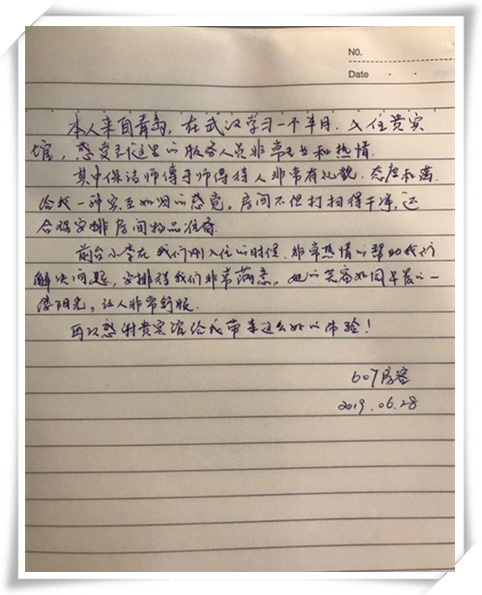 NO.
Date
本人来自青岛,在武汉学习一个半月.入住贵宾
馆,感受到这里的服务人员非常专业和热情.
其中保洁师傅于师傅待人非常有礼貌、态度和蔼
给我一种宾至如归的感觉。房间不但打扫得干净,还
合理安排房间物品准备
前台小李在我们刚入住的时候,非常热情的帮助我们
解决问题,安排得我们非常满意,她的笑容如同早晨的一
缕阳光,让人非常舒服.
再次感谢贵宾馆给我带来这么好的体验!
607房客
2019.06.28